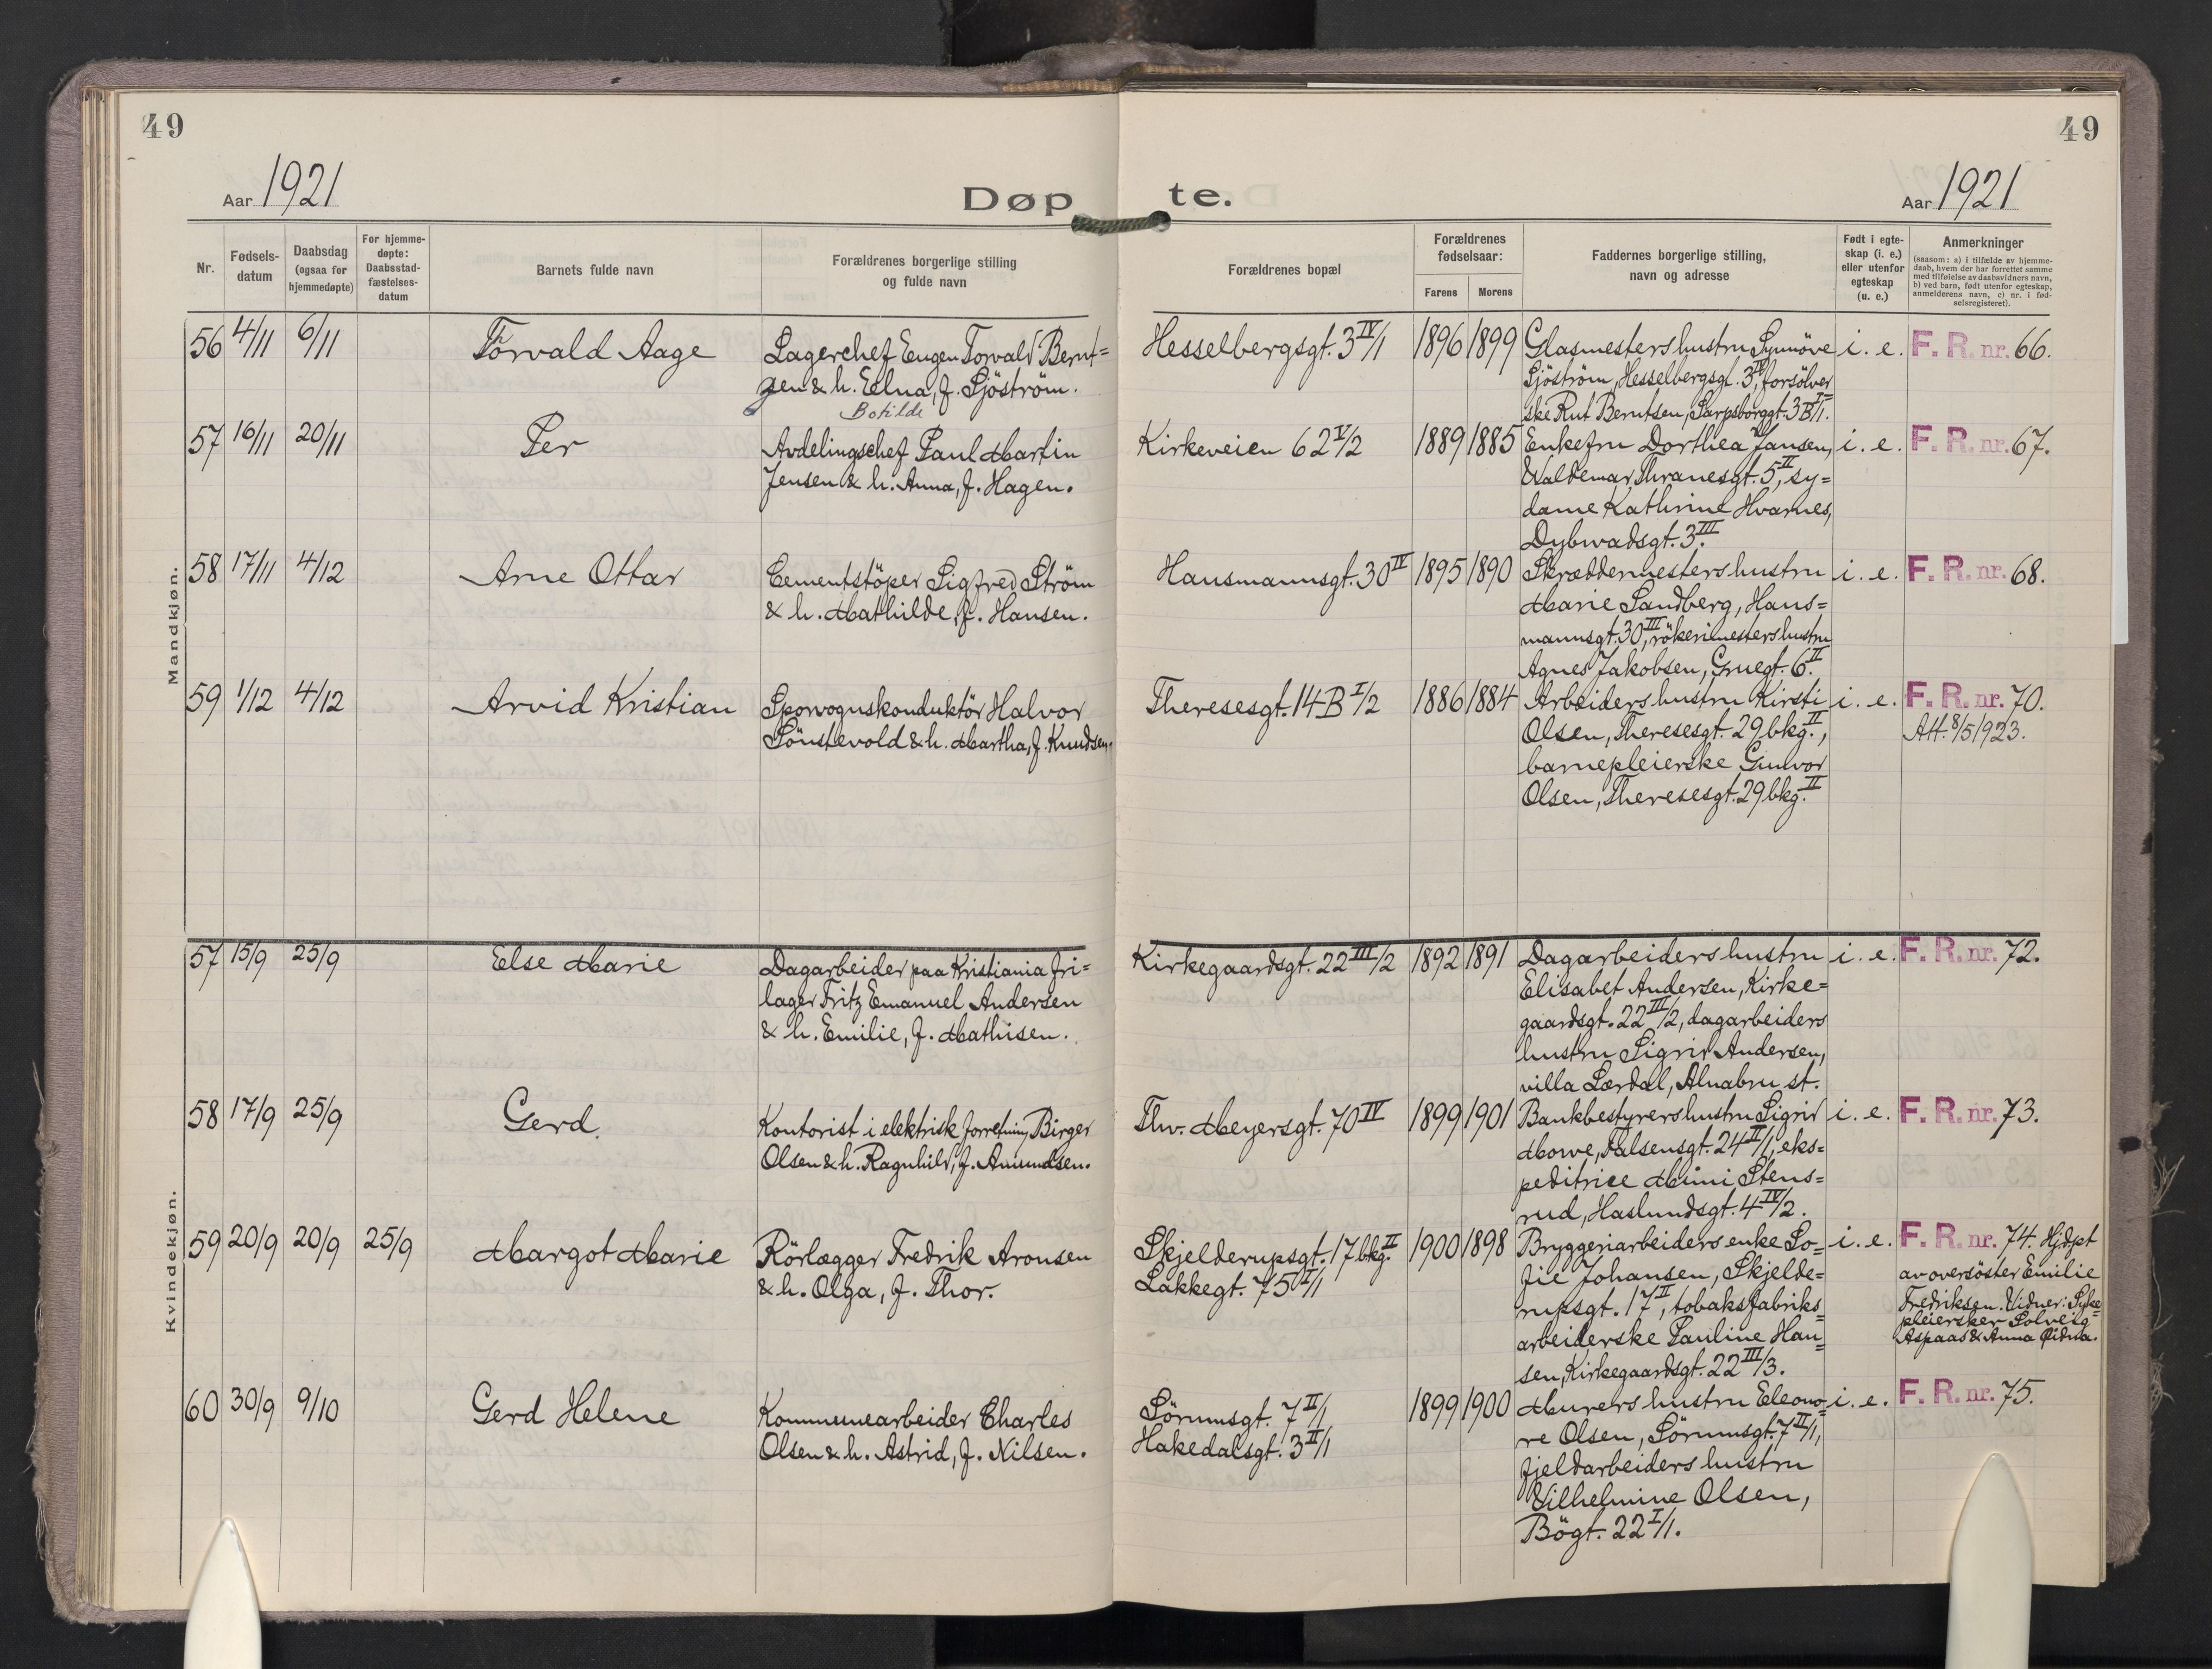 49
49
Aar 1921
Døpte.
Aar 1921
Nr.
Fødsels-
datum
Daabsdag
(ogsaa for
hjemmedøpte)
For hjemme-
døpte:
Daabsstad-
fæstelses-
datum
Barnets fulde navn
Forældrenes borgerlige stilling
og fulde navn
Forældrenes bopæl
Forældrenes
fødselsaar:
Farens
Morens
Faddernes borgerlige stilling,
navn og adresse
Født i egte-
skap (i. e.)
eller utenfor
egteskap
(u. e.)
Anmerkninger
(saasom: a) i tilfælde av hjemme-
daab, hvem der har forrettet samme
med tilføielse av daabsvidners navn,
b) ved barn, født utenfor egteskap,
anmelderens navn, c) nr. i fød-
selsregisteret).
Mandkjøn.
56 4/11 6/11 Torvald Aage
Lagerchef Eugen Torvald Bernt=
zen & h. Elna, f. Sjöström.
Botilde
Hesselbergsgt. 3 IV/1 1896 1899
Glasmesters hustru Synnöve
Sjöström, Hesselbergsgt. 3 IV, forsölver
ske Rut Berntsen, Sarpsborggt. 3 B I/1.
i. e. F. R. nr. 66.
57 16/11 20/11 Per
Avdelingschef Paul Martin
Jensen & h. Anna, f. Hagen.
Kirkeveien 62 V/2 1889 1885
Enkefru Dorthea Jansen,
Waldemar Thranesgt. 5 II, sy=
dame Kathrine Hvarnes,
Dybwadsgt. 3 III.
i. e. F. R. nr. 67.
58 17/11 4/12 Arne Ottar
Cementstöper Sigfred Ström
& h. Mathilde, f. Hansen.
Hausmannsgt. 30 IV 1895 1890
Skræddermesters hustru
Marie Sandberg, Haus=
mannsgt. 30 III, rökerimesters hustru
Agnes Jakobsen, Gruegt. 6 II.
i. e. F. R. nr. 68.
59 1/12 4/12 Arvid Kristian
Sporvognskonduktör Halvor
Sönstevold & h. Martha, f. Knudsen.
Theresesgt. 14 B I/2 1886 1884
Arbeiders hustru Kirsti
Olsen, Theresesgt. 29 bkg. II,
barnepleierske Gunvor
Olsen, Theresesgt. 29 bkg. II
i. e. F. R. nr. 70.
Att. 8/5 1923.
Kvindekjøn.
57 15/9 25/9 Else Marie
Dagarbeider paa Kristiania fri=
lager Fritz Emanuel Andersen
& h. Emilie, f. Mathisen.
Kirkegaardsgt. 22 III/2 1892 1891
Dagarbeiders hustru
Elisabet Andersen, Kirke=
gaardsgt. 22 III/2, dagarbeiders
hustru Sigrid Andersen,
villa Lærdal, Alnabru st.
i. e. F. R. nr. 72.
58 17/9 25/9 Gerd.
Kontorist i elektrisk forretning Birger
Olsen & h. Ragnhild, f. Amundsen.
Thv. Meyersgt. 70 IV 1899 1901
Bankbestyrers hustru Sigrid
Mowe, Falsensgt. 24 II/1, eks=
peditrice Mimi Stens=
rud, Haslundsgt. 4 IV/2.
i. e. F. R. nr. 73.
59 20/9 20/9 25/9 Margot Marie
Rörlægger Fredrik Aronsen
& h. Olga, f. Thor.
Skjelderupsgt. 17 bkg. II
Lakkegt. 75 I/1
1900 1898
Bryggeriarbeiders enke So=
fie Johansen, Skjelde=
rupsgt. 17 II, tobaksfabriks=
arbeiderske Pauline Han=
sen, Kirkegaardsgt. 22 III/3.
i. e. F. R. nr. 74. Hjdpt
av oversöster Emilie
Fredriksen. Vidner: Syke=
pleiersker Solveig
Aspaas & Anna Eidna.
60 30/9 9/10 Gerd Helene
Kommunearbeider Charles
Olsen & h. Astrid, f. Nilsen.
Sörumsgt. 7 II/1
Hakedalsgt. 3 II/1
1899 1900
Murers hustru Eleono=
re Olsen, Sörumsgt. 7 II/1,
fjeldarbeiders hustru
Vilhelmine Olsen,
Bögt. 22 I/1.
i. e. F. R. nr. 75.